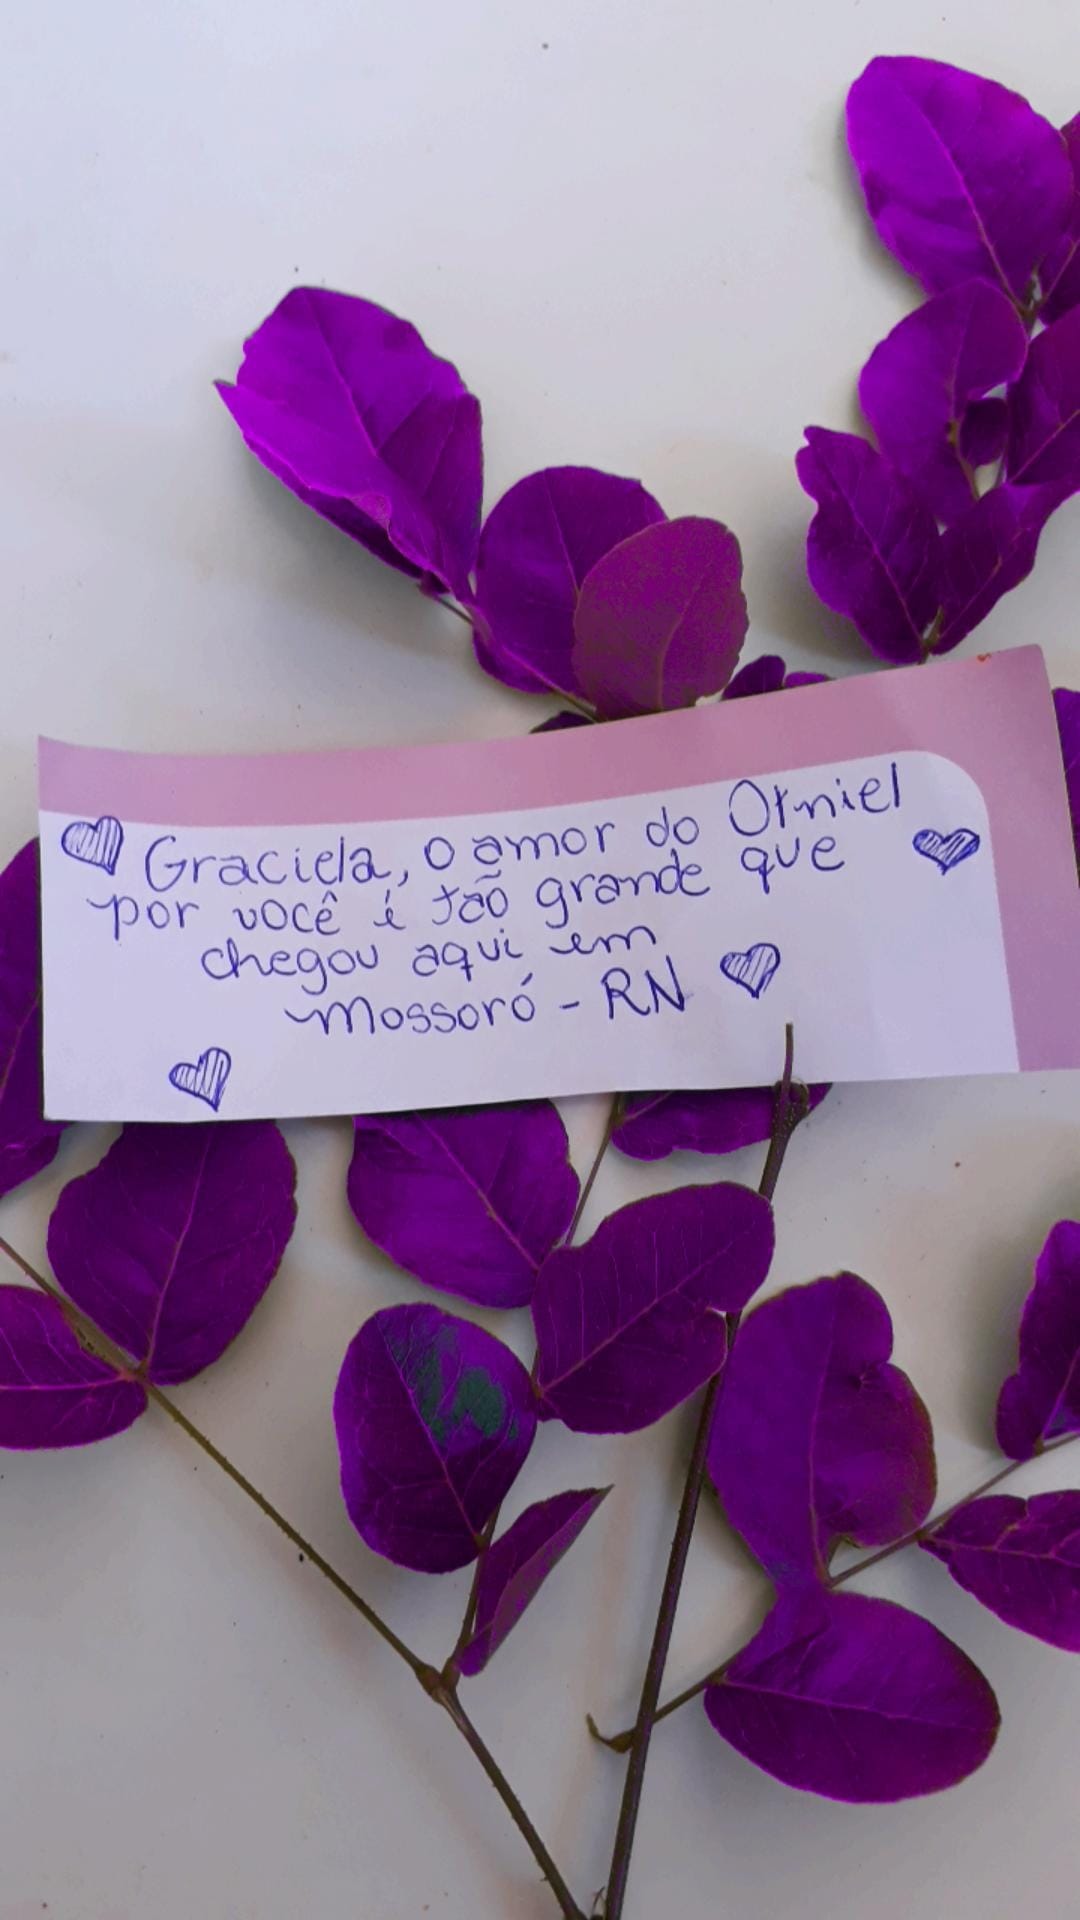 Graciela, o amor do Otniel
por você é tão grande que
chegou aqui em
Mossoró - RN